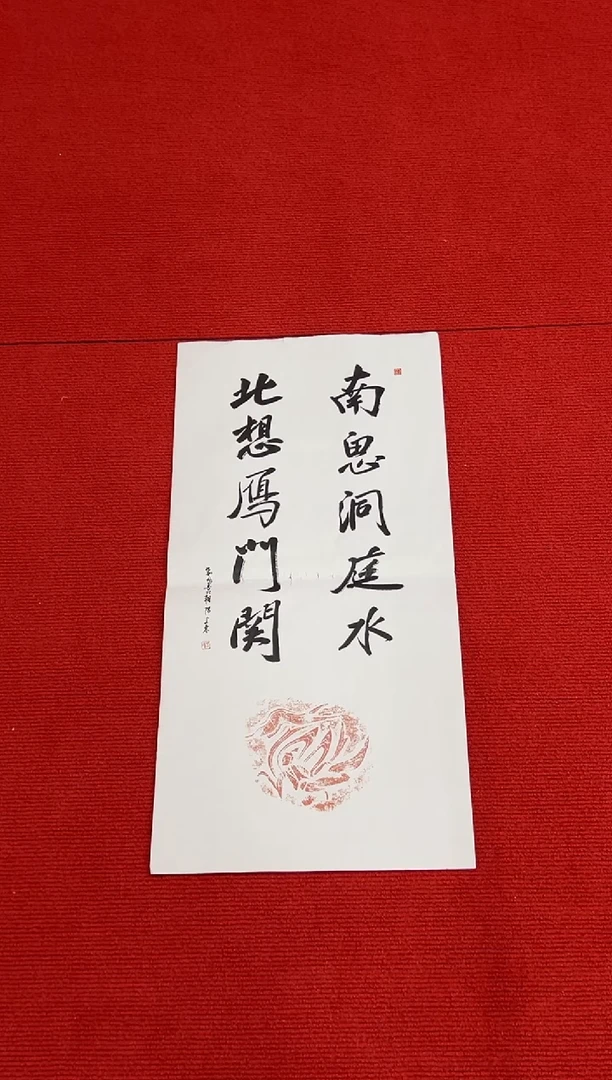 南思洞庭水
北想鴈門関